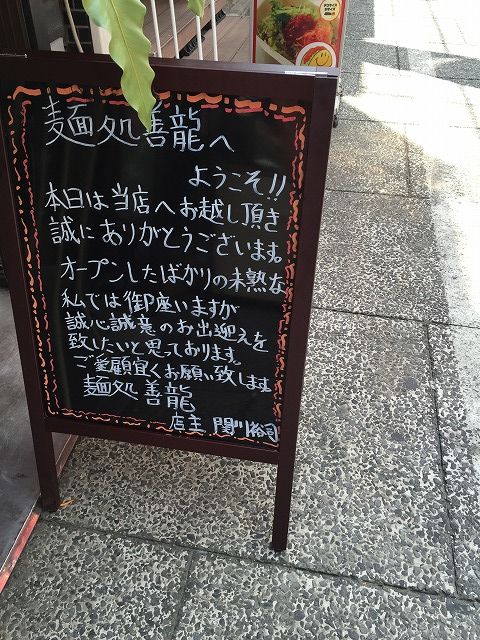 麺処善龍へ
ようこそ!!
本日は当店へお越し頂き
誠にありがとうございます。
オープンしたばかりの未熟な
私では御座いますが
誠心誠衷のお出迎えを
致したいと思っております。
ご愛顧宜くお願い致します
麺処 善龍
店主 関川裕司